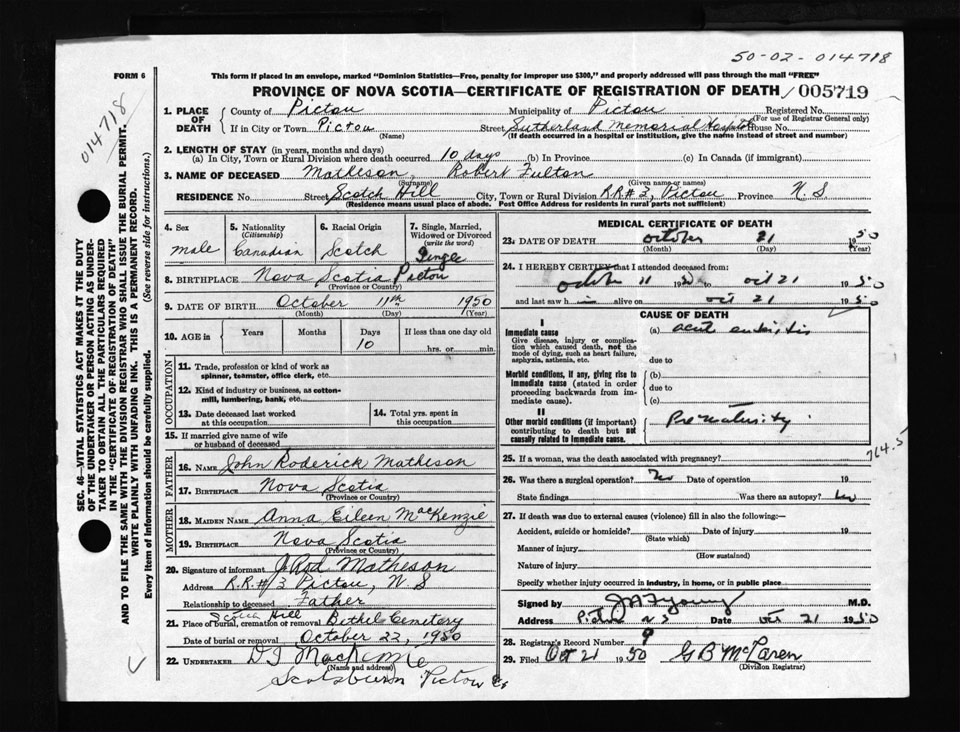 50-02-014718
FORM 6
This form if placed in an envelope, marked "Dominion Statistics—Free, penalty for improper use $300," and properly addressed will pass through the mail "FREE"
PROVINCE OF NOVA SCOTIA—CERTIFICATE OF REGISTRATION OF DEATH 005719
014718
SEC. 46—VITAL STATISTICS ACT MAKES IT THE DUTY
OF THE UNDERTAKER OR PERSON ACTING AS UNDER-
TAKER TO OBTAIN ALL THE PARTICULARS REQUIRED
IN THE "CERTIFICATE OF REGISTRATION OF DEATH"
AND TO FILE THE SAME WITH THE DIVISION REGISTRAR WHO SHALL ISSUE THE BURIAL PERMIT.
WRITE PLAINLY WITH UNFADING INK. THIS IS A PERMANENT RECORD.
Every item of information should be carefully supplied. (See reverse side for instructions.)
1. PLACE OF DEATH
County of Pictou Municipality of Pictou Registered No.
(For use of Registrar General only)
If in City or Town Pictou Street Sutherland Memorial Hospital House No.
(Name) (If death occurred in a hospital or institution, give the name instead of street and number)
2. LENGTH OF STAY (in years, months and days)
(a) In City, Town or Rural Division where death occurred 10 days (b) In Province (c) In Canada (if immigrant)
3. NAME OF DECEASED Matheson, Robert Fulton
(Surname) (Given name or names)
RESIDENCE No. Street Scotch Hill City, Town or Rural Division R.R.#3, Pictou Province N.S
(Residence means usual place of abode. Post Office Address for residents in rural parts not sufficient)
4. Sex
male
5. Nationality
(Citizenship)
Canadian
6. Racial Origin
Scotch
7. Single, Married,
Widowed or Divorced
(write the word)
Single
8. BIRTHPLACE Nova Scotia Pictou
(Province or Country)
9. DATE OF BIRTH October 11th 1950
(Month) (Day) (Year)
10. AGE in Years Months Days If less than one day old
10 hrs. or min.
OCCUPATION
11. Trade, profession or kind of work as
spinner, teamster, office clerk, etc.
12. Kind of industry or business, as cotton-
mill, lumbering, bank, etc.
13. Date deceased last worked
at this occupation
14. Total yrs. spent in
this occupation
15. If married give name of wife
or husband of deceased
FATHER
16. NAME John Roderick Matheson
17. BIRTHPLACE Nova Scotia
(Province or Country)
MOTHER
18. MAIDEN NAME Anna Eileen MacKenzie
19. BIRTHPLACE Nova Scotia
(Province or Country)
20. Signature of informant J. Rod Matheson
Address R.R.#3 Pictou, N.S
Relationship to deceased Father
Scotch Hill
21. Place of burial, cremation or removal Bethel Cemetery
Date of burial or removal October 22, 1950
22. UNDERTAKER D J MacKenzie
(Name and address)
Scotsburn Pictou Co
MEDICAL CERTIFICATE OF DEATH
23. DATE OF DEATH October 21 1950
(Month) (Day)
24. I HEREBY CERTIFY that I attended deceased from:
October 11 1950 to Oct 21 1950
and last saw h im alive on Oct 21 1950
CAUSE OF DEATH
I
Immediate cause
Give disease, injury or complica-
tion which caused death, not the
mode of dying, such as heart failure,
asphyxia, asthenia, etc.
(a) acute
due to
Morbid conditions, if any, giving rise to
immediate cause (stated in order
proceeding backwards from im-
mediate cause).
(b)
due to
(c)
II
Other morbid conditions (if important)
contributing to death but not
causally related to immediate cause.
Prematurity
764.5
25. If a woman, was the death associated with pregnancy?
26. Was there a surgical operation? No Date of operation 19
State findings Was there an autopsy? No
27. If death was due to external causes (violence) fill in also the following:—
Accident, suicide or homicide? Date of injury 19
(State which)
Manner of injury
(How sustained)
Nature of injury
Specify whether injury occurred in industry, in home, or in public place
Signed by M.D.
Address Pictou N S Date Oct 21 1950
28. Registrar's Record Number 9
29. Filed Oct 21 1950 G B McLaren
(Division Registrar)